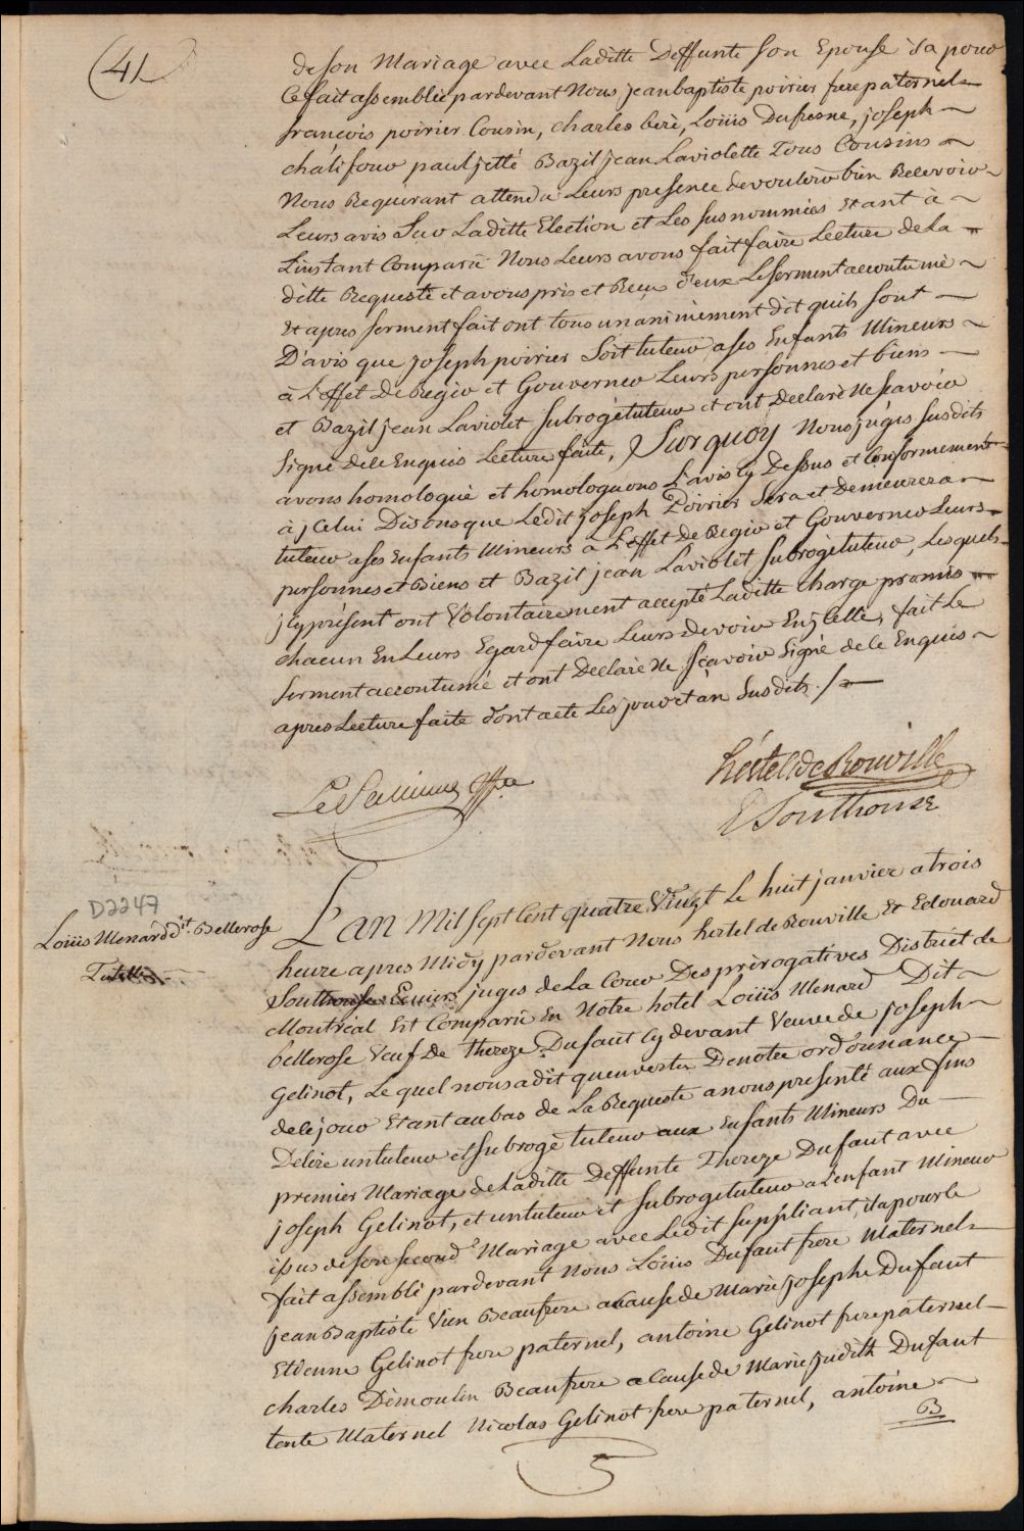 (41)
de son Mariage avec Laditte Deffunte son Epouse il a pour
Ce fait assemblée pardevant Nous jean baptiste poirier frere paternel
françois poirier Cousin, charles beré, Loüis Dufresne, joseph
chálifour paul jetté Bazil jean Laviolette Tous Cousins
Nous Requérant attendu Leurs presence de vouloir bien Recevoir
Leurs avis Sur Laditte Election et Les susnommiés Etant à
L'instant Comparû Nous Leurs avons fait faire Lecture de La
ditte Requeste et avons pris et Reçu d'eux Le serment accoutumé
Et apres serment fait ont tous unanimement dit quils sont
D'avis que joseph poirier Soit tuteur a ses Enfants Mineurs
à L'effet de Regir et Gouverner Leurs personnes et biens
et Bazil jean Laviolet subrogé tuteur et ont Declaré Ne sçavoir
Signé de ce Enquis Lecture faite, Sur quoy Nous juges susdits
avons homologué et homologuons L'avis Cy Dessus et Conformement
à jCelui Disons que Ledit joseph Poirier Sera et Demeurera
tuteur a ses Enfants Mineurs à L'effet de Regir et Gouverner Leurs
personnes et Biens et Bazil jean Laviolet subrogé tuteur, Lesquels
jCy présent ont Volontairement accepté Laditte charge promis
chacun En Leurs Egard faire Leurs devoir En jCelle, fait Le
Serment accoutumé et ont Declaré Ne sçavoir Signé de ce Enquis
apres Lecture faite dont acte Les jour et an Susdits ./.
hértel de Rouville
E Southouse
D2247
Loüis Menard dt. Bellerose
L'an Mil sept Cent quatre Vingt Le huit janvier a trois
heure apres Midy pardevant Nous hertel de Rouville Et Edouard
Southouse Ecuiers juges de La Cour Des prérogatives District de
Montréal Est Comparû En Notre hotel Loüis Menard Dit
bellerose Veuf De Thereze Dufaut Cy devant Veuve de joseph
Gelinot, Le quel nous a dit qu'en vertu De notre ordonnance
de ce jour Etant au bas de La Requeste a nous presenté aux fins
D'elire un tuteur et subrogé tuteur aux Enfants Mineurs Du
premier Mariage de Laditte Deffunte Thereze Dufaut avec
joseph Gelinot, et un tuteur et subrogé tuteur a L'enfant Mineur
issus de son second Mariage avec Ledit suppliant, il a pour Ce
fait assemblé pardevant Nous Loüis Dufaut frere Maternel
jean Baptiste Vien Beaufrere a Cause de Marie josephe Dufaut
Etienne Gelinot frere paternel, antoine Gelinot frere paternel
charles Démoulin Beaufrere a Cause de Marie judith Dufaut
tente Maternel Nicolas Gelinot frere paternel, antoine
B
5